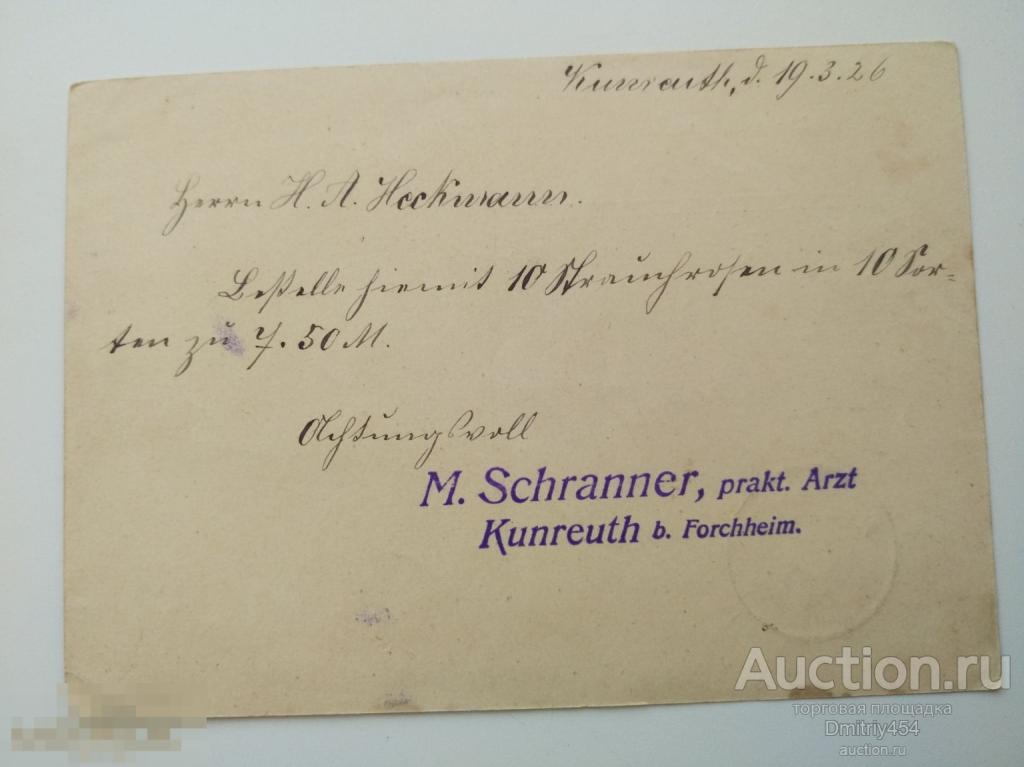 Kunreuth, d. 19.3.26
Herrn H. A. Heckmann.
Bestelle hiemit 10 Strauchrosen in 10 Sor-
ten zu 7.50 M.
Achtungsvoll
M. Schranner, prakt. Arzt
Kunreuth b. Forchheim.
Auction.ru
торговая площадка
Dmitriy454
auction.ru